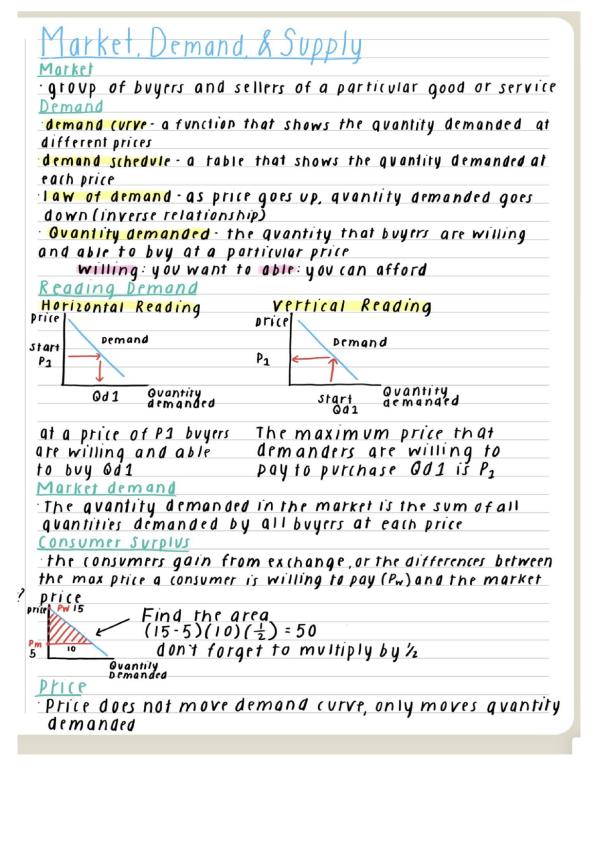 Market, Demand, & Supply
Market
· group of buyers and sellers of a particular good or service
Demand
· demand curve - a function that shows the quantity demanded at
different prices
· demand schedule - a table that shows the quantity demanded at
each price
· law of demand - as price goes up, quantity demanded goes
down (inverse relationship)
· Quantity demanded - the quantity that buyers are willing
and able to buy at a particular price
willing: you want to able: you can afford
Reading Demand
Horizontal Reading
Price
Demand
start
P1
Qd1
Quantity
demanded
at a price of P1 buyers
are willing and able
to buy Qd1
Vertical Reading
price
Demand
P1
start
Qd1
Quantity
demanded
The maximum price that
demanders are willing to
pay to purchase Qd1 is P1
Market demand
· The quantity demanded in the market is the sum of all
quantities demanded by all buyers at each price
Consumer Surplus
· the consumers gain from exchange, or the differences between
the max price a consumer is willing to pay (Pw) and the market
? price
price
Pw 15
Pm
5
10
Quantity
Demanded
Find the area
(15-5)(10)(1/2) = 50
don't forget to multiply by 1/2
Price
· Price does not move demand curve, only moves quantity
demanded